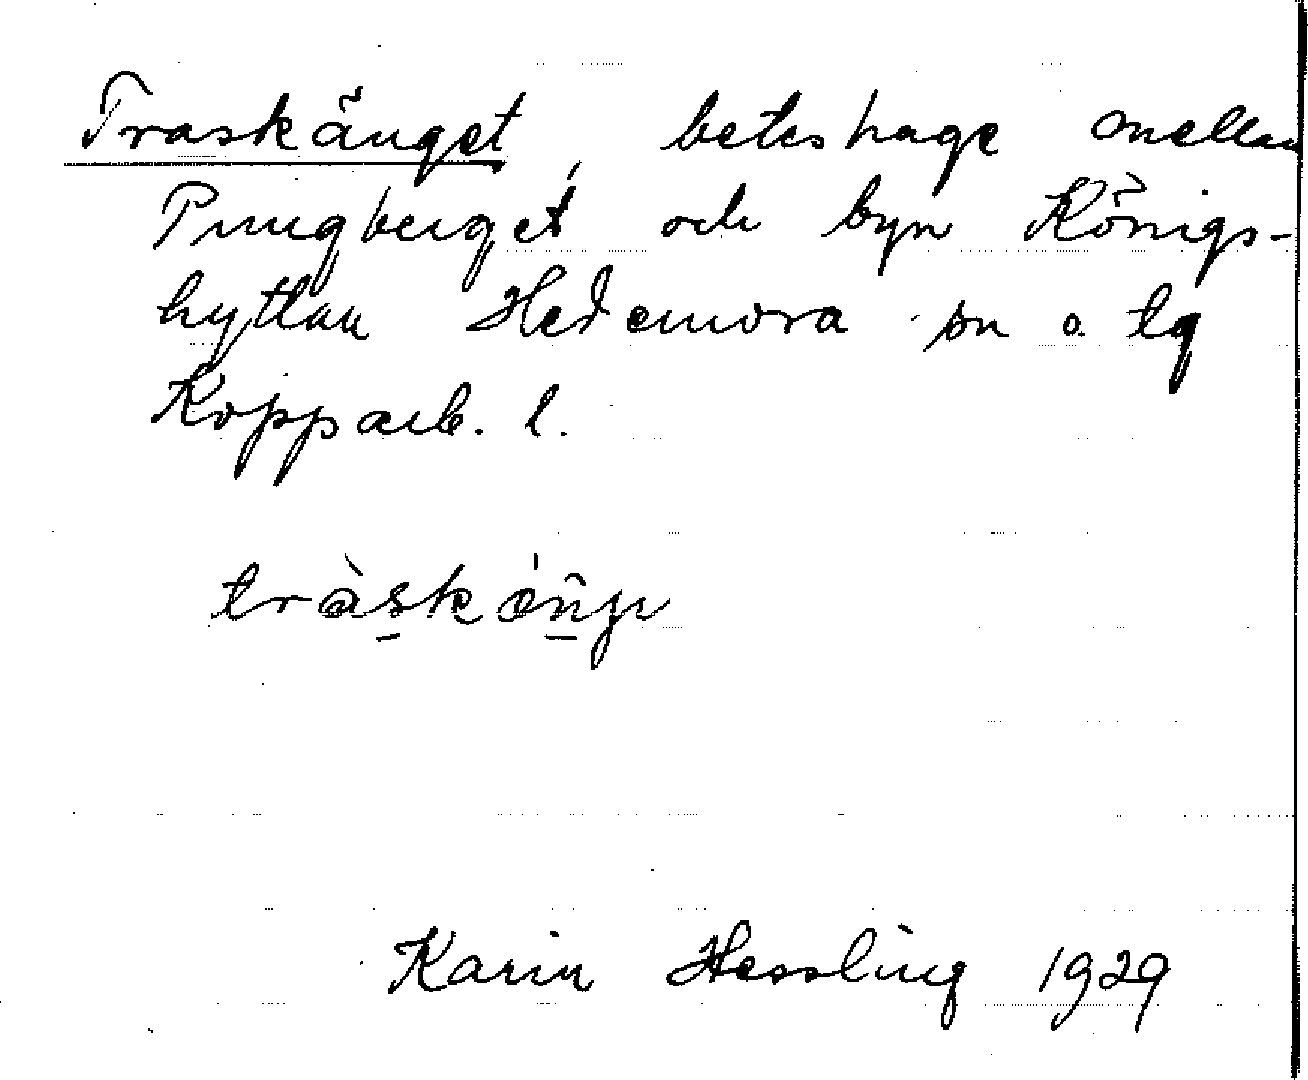 Traskänget, beteshage mellan
Pungberget och byn Königs-
hyttan Hedemora sn o. tg
Kopparb. l.
tràskæ̀ŋjı
Karin Hessling 1929